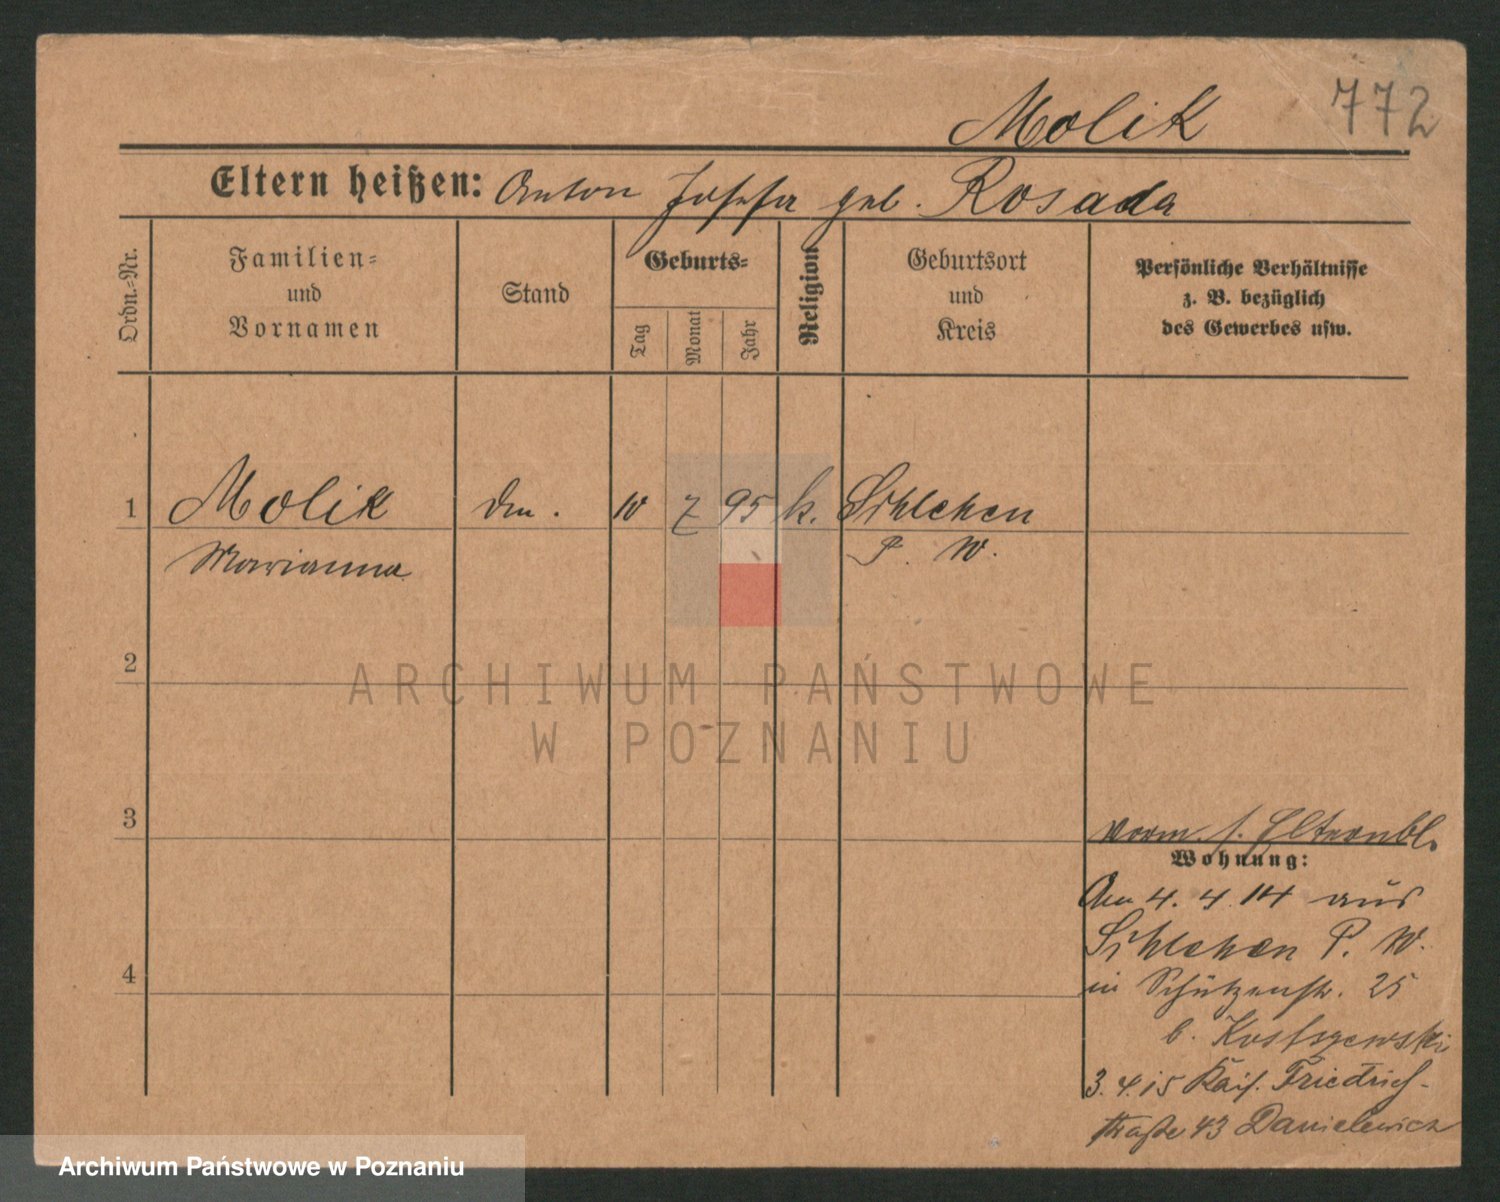 772
Molik
Eltern heißen: Anton Josefa geb. Rosada
Ordn.-Nr.
Familien-
und
Vornamen
Stand
Geburts-
Tag
Monat
Jahr
Religion
Geburtsort
und
Kreis
Persönliche Verhältnisse
z. B. bezüglich
des Gewerbes usw.
1 Molik 10 7 95 k. Schlehen
Marianna P. W.
2
3
4
vorm. s. Elternbl.
Wohnung:
Am 4. 4. 14 aus
Schlehen P. W.
in Schützenstr. 25
b. Kostszewski
3. 4. 15 Kais. Friedrich-
straße 43 Danielewicz
ARCHIWUM PAŃSTWOWE
W POZNANIU
Archiwum Państwowe w Poznaniu